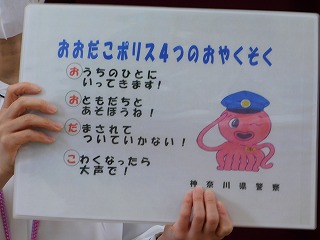 おおだこポリス4つのおやくそく
おうちのひとに
いってきます!
おともだちと
あそぼうね!
だまされて
ついていかない!
こわくなったら
大声で!
神奈川県警察